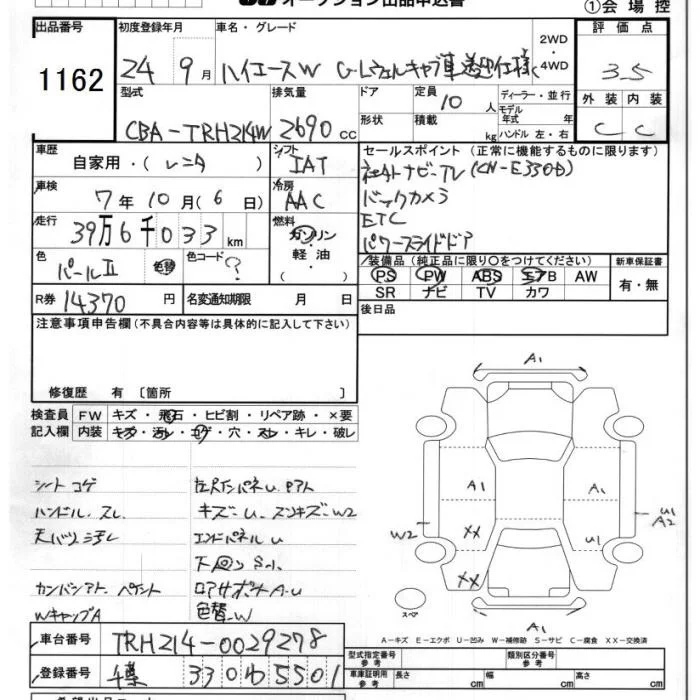 オークション出品申込書
①会場控
出品番号 初度登録年月 車名・グレード 2WD・4WD 評価点
1162 24 9月 ハイエースW G-Lウェルキャブ車送迎仕様 3.5
型式 排気量 ドア 定員 10人 ディーラー・並行 外装 内装
CBA-TRH214W 2690cc 形状 積載 kg モデル年式 年 ハンドル 左・右 C C
車歴 自家用・(レンタ) シフト IAT セールスポイント (正常に機能するものに限ります)
車検 7年10月(6日) 冷房 AAC 社外ナビ-TV (CN-E330D)
バックカメラ
走行 39万6千033km 燃料 ガソリン・軽油・( ) ETC
パワースライドドア
色 パールⅡ 色替 色コード ? 装備品 (純正品に限り○をつけてください) 新車保証書
PS PW ABS エアB AW 有・無
SR ナビ TV カワ
R券 14370円 名変通知期限 月 日 後日品
注意事項申告欄(不具合内容等は具体的に記入して下さい)
修復歴 有 〔箇所 〕
検査員記入欄 FW キズ・飛石・ヒビ割・リペア跡・×要
内装 キズ・汚レ・コゲ・穴・スレ・キレ・破レ
シートコゲ
ハンドル スレ
キズ-U スリキズ-W2
エンドパネルU
下回りS小
Wキャップ A
色替-W
A1
A1
A1
XX
U1
W2
U1
A2
XX
スペ
A1
A-キズ E-エクボ U-凹み W-補修跡 S-サビ C-腐食 XX-交換済
車台番号 TRH214-0029278
型式指定番号参考 類別区分番号参考
登録番号 千葉 330わ5501
車庫証明用参考 長さ cm 幅 cm 高さ cm